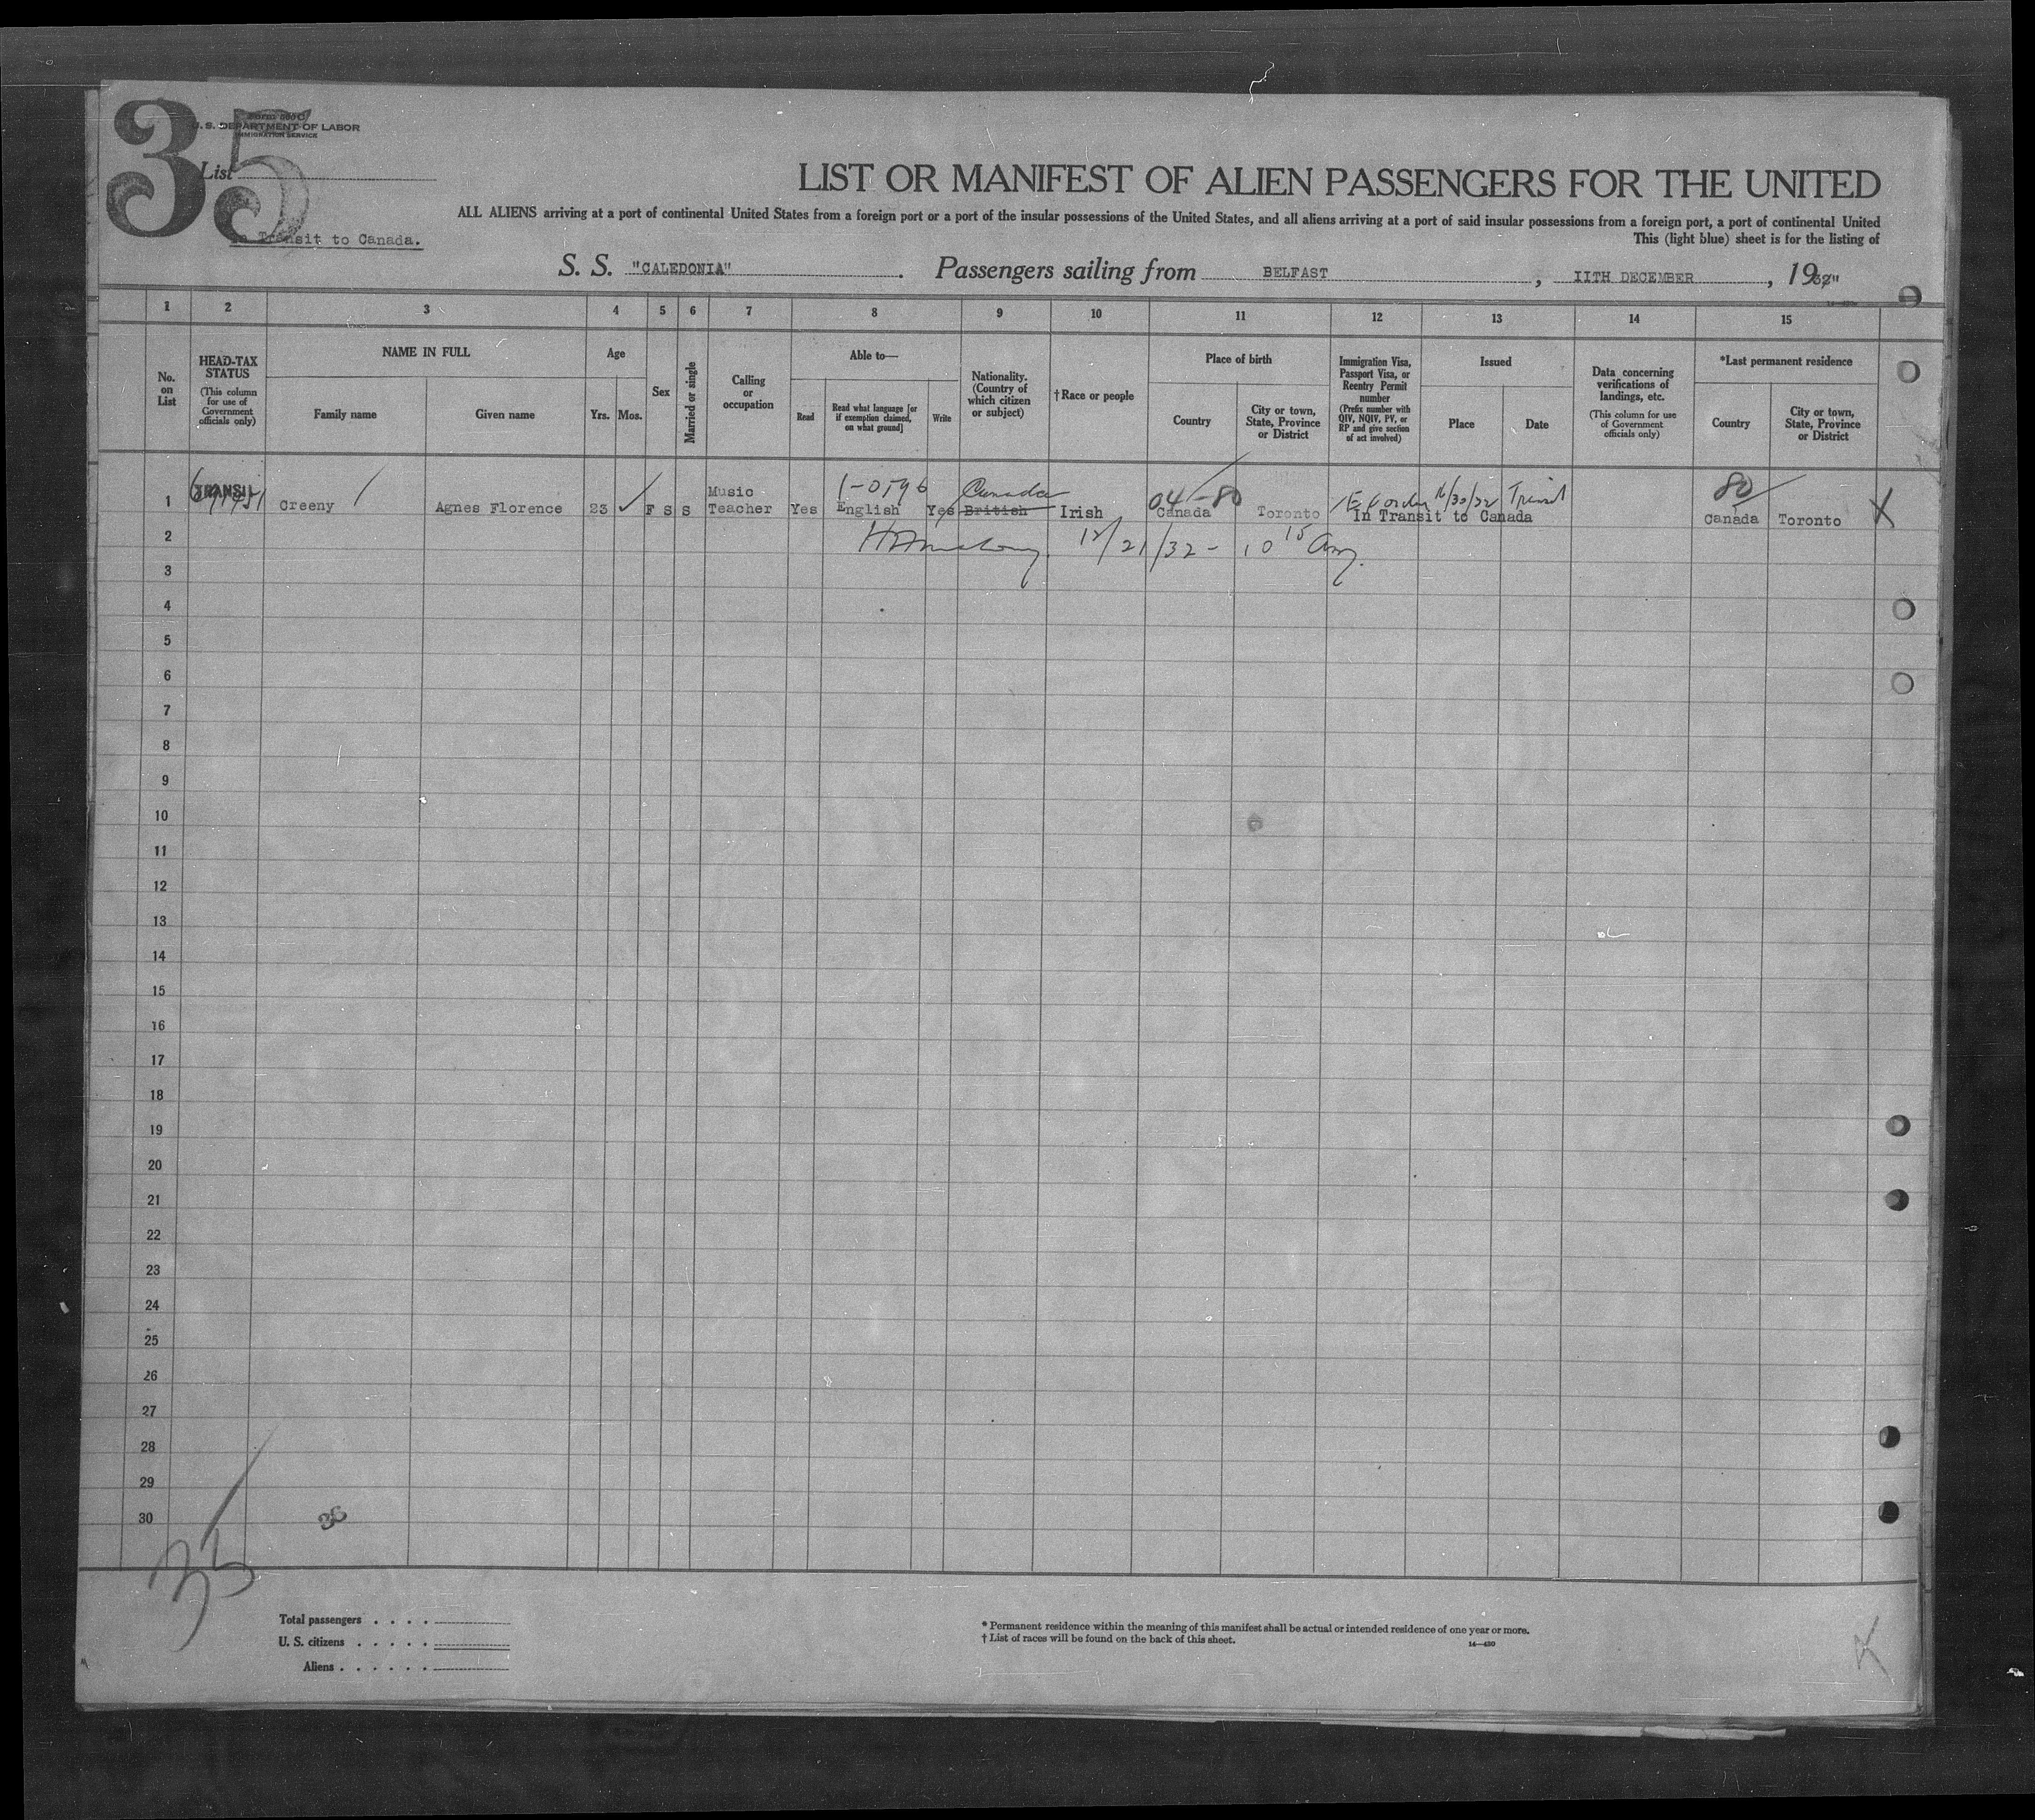 35
U. S. DEPARTMENT OF LABOR
IMMIGRATION SERVICE
List
In Transit to Canada.
LIST OR MANIFEST OF ALIEN PASSENGERS FOR THE UNITED
ALL ALIENS arriving at a port of continental United States from a foreign port or a port of the insular possessions of the United States, and all aliens arriving at a port of said insular possessions from a foreign port, a port of continental United
This (light blue) sheet is for the listing of
S. S. "CALEDONIA". Passengers sailing from BELFAST, 11TH DECEMBER, 1932
1 2 3 4 5 6 7 8 9 10 11 12 13 14 15
No. on List
HEAD-TAX STATUS
(This column for use of Government officials only)
NAME IN FULL
Family name
Given name
Age
Yrs. Mos.
Sex
Married or single
Calling or occupation
Able to—
Read
Read what language [or if exemption claimed, on what ground]
Write
Nationality. (Country of which citizen or subject)
†Race or people
Place of birth
Country
City or town, State, Province or District
Immigration Visa, Passport Visa, or Reentry Permit number
(Prefix number with QIV, NQIV, PV, or RP and give section of act involved)
Issued
Place
Date
Data concerning verifications of landings, etc.
(This column for use of Government officials only)
*Last permanent residence
Country
City or town, State, Province or District
1-0596 Canada 04-80 12/30/32 Transit 80
1 TRANSIT Creeny Agnes Florence 23 F S S Music Teacher Yes English Yes British Irish Canada Toronto In Transit to Canada Canada Toronto X
2 12/21/32 - 10 15 am
3
4
5
6
7
8
9
10
11
12
13
14
15
16
17
18
19
20
21
22
23
24
25
26
27
28
29
30
36
35
Total passengers . . . .
U. S. citizens . . . . .
Aliens . . . . . .
* Permanent residence within the meaning of this manifest shall be actual or intended residence of one year or more.
† List of races will be found on the back of this sheet.
14—430